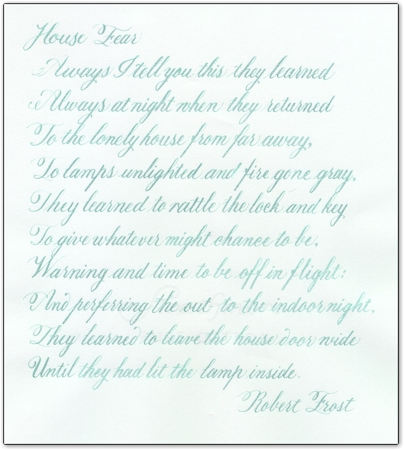 House Fear
Always I tell you this they learned
Always at night when they returned
To the lonely house from far away,
To lamps unlighted and fire gone gray,
They learned to rattle the lock and key
To give whatever might chance to be.
Warning and time to be off in flight:
And perferring the out- to the indoor night,
They learned to leave the house door wide
Until they had lit the lamp inside.
Robert Frost